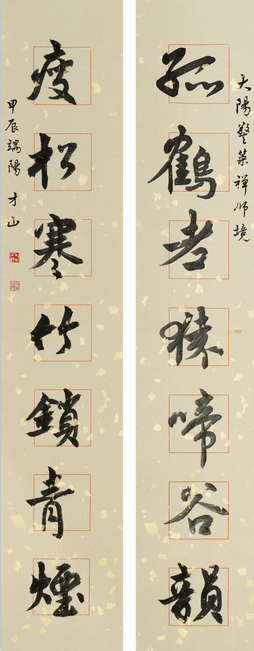 大陽警策禪師境
孤鶴老猿啼谷韻
瘦松寒竹鎖青煙
甲辰端陽才山